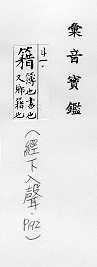 彙音寶鑑
籍
簿也書也
又鄉籍也
(經下入聲·